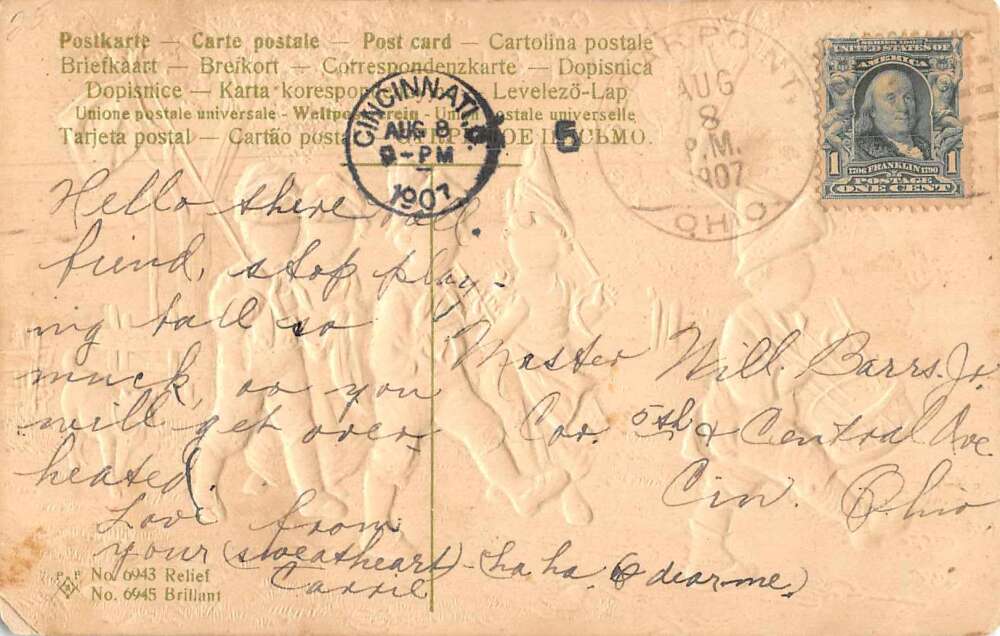 Postkarte — Carte postale — Post card — Cartolina postale
Briefkaart — Brefkort — Correspondenzkarte — Dopisnica
Dopisnice — Karta korespon Levelező-Lap
Unione postale universale - Weltpostverein - Union postale universelle
Tarjeta postal — Cartão postal
CINCINNATI, O.
AUG 8
-PM
1907
5
PPOINT,
AUG
8
P.M.
1907
OHIO
SERIES 1902
UNITED STATES OF
AMERICA
1 1706 FRANKLIN 1790 1
POSTAGE
ONE CENT
Hello there
friend, stop play-
ing ball so
much, as you
will get over-
heated.
Love from
your (sweatheart) (ha ha & dear me)
Carrie
Master Will. Barrs. Jr.
Cor. 5th & Central Ave.
Cin. Ohio.
P F
No. 6943 Relief
No. 6945 Brillant